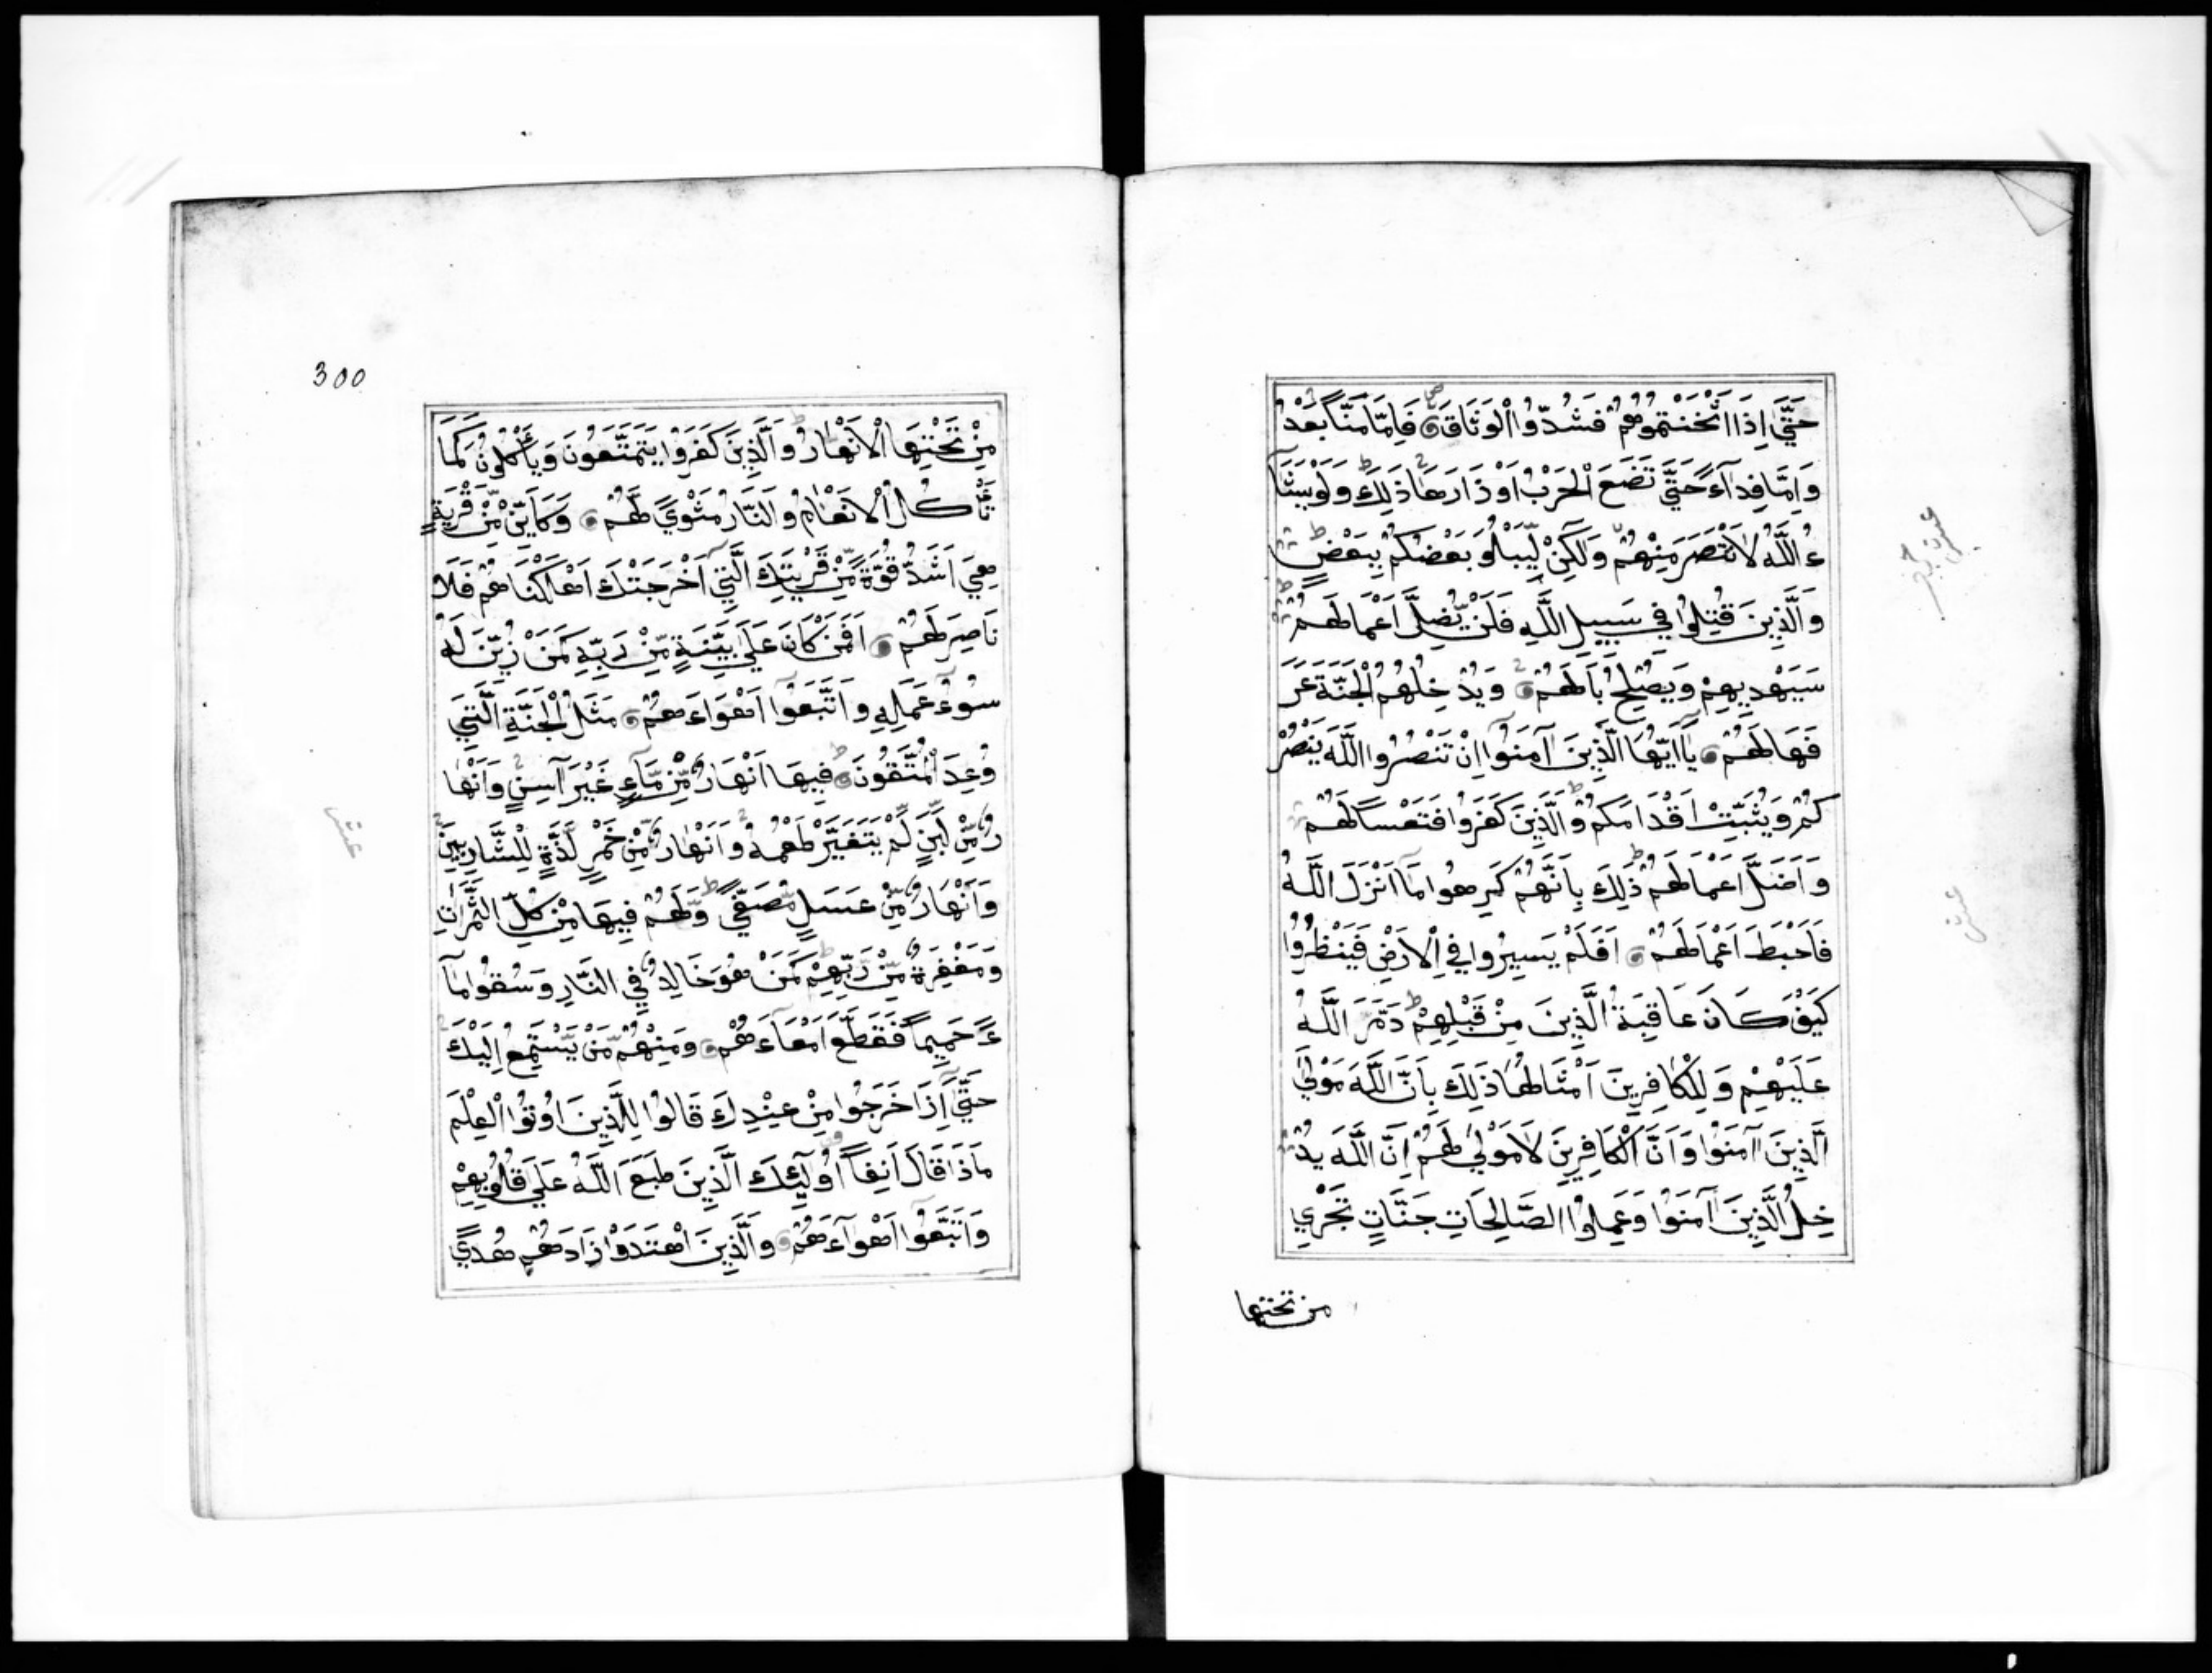 حَتَّى اِذَا اَثْخَنْتُمُوهُمْ فَشُدُّوا الْوَثَاقَ فَاِمَّا مَنّاً بَعْدُ
وَاِمَّا فِدَآءً حَتَّى تَضَعَ الْحَرْبُ اَوْزَارَهَا ذَلِكَ وَلَوْ يَشَآ
ءُ اللَّهُ لَانْتَصَرَ مِنْهُمْ وَلَكِنْ لِّيَبْلُوَ بَعْضَكُمْ بِبَعْضٍ
وَالَّذِينَ قُتِلُوا فِي سَبِيلِ اللَّهِ فَلَنْ يُّضِلَّ اَعْمَالَهُمْ
سَيَهْدِيهِمْ وَيُصْلِحُ بَالَهُمْ وَيُدْخِلُهُمُ الْجَنَّةَ عَرَّ
فَهَا لَهُمْ يَآ اَيُّهَا الَّذِينَ آمَنُوا اِنْ تَنْصُرُوا اللَّهَ يَنْصُرْ
كُمْ وَيُثَبِّتْ اَقْدَامَكُمْ وَالَّذِينَ كَفَرُوا فَتَعْساً لَهُمْ
وَاَضَلَّ اَعْمَالَهُمْ ذَلِكَ بِاَنَّهُمْ كَرِهُوا مَا اَنْزَلَ اللَّهُ
فَاَحْبَطَ اَعْمَالَهُمْ اَفَلَمْ يَسِيرُوا فِي الْاَرْضِ فَيَنْظُرُوا
كَيْفَ كَانَ عَاقِبَةُ الَّذِينَ مِنْ قَبْلِهِمْ دَمَّرَ اللَّهُ
عَلَيْهِمْ وَلِلْكَافِرِينَ اَمْثَالُهَا ذَلِكَ بِاَنَّ اللَّهَ مَوْلَى
الَّذِينَ آمَنُوا وَاَنَّ الْكَافِرِينَ لَا مَوْلَى لَهُمْ اِنَّ اللَّهَ يُدْ
خِلُ الَّذِينَ آمَنُوا وَعَمِلُوا الصَّالِحَاتِ جَنَّاتٍ تَجْرِي
من تحتها
عشر
300
مِنْ تَحْتِهَا الْاَنْهَارُ وَالَّذِينَ كَفَرُوا يَتَمَتَّعُونَ وَيَأْكُلُونَ كَمَا
تَأْكُلُ الْاَنْعَامُ وَالنَّارُ مَثْوًى لَّهُمْ وَكَاَيِّنْ مِّنْ قَرْيَةٍ
هِيَ اَشَدُّ قُوَّةً مِّنْ قَرْيَتِكَ الَّتِي اَخْرَجَتْكَ اَهْلَكْنَاهُمْ فَلَا
نَاصِرَ لَهُمْ اَفَمَنْ كَانَ عَلَى بَيِّنَةٍ مِّنْ رَبِّهِ كَمَنْ زُيِّنَ لَهُ
سُوءُ عَمَلِهِ وَاتَّبَعُوا اَهْوَاءَهُمْ مَثَلُ الْجَنَّةِ الَّتِي
وُعِدَ الْمُتَّقُونَ فِيهَا اَنْهَارٌ مِّنْ مَّآءٍ غَيْرِ آسِنٍ وَاَنْهَا
رٌ مِّنْ لَّبَنٍ لَّمْ يَتَغَيَّرْ طَعْمُهُ وَاَنْهَارٌ مِّنْ خَمْرٍ لَّذَّةٍ لِّلشَّارِبِينَ
وَاَنْهَارٌ مِّنْ عَسَلٍ مُّصَفًّى وَلَهُمْ فِيهَا مِنْ كُلِّ الثَّمَرَاتِ
وَمَغْفِرَةٌ مِّنْ رَّبِّهِمْ كَمَنْ هُوَ خَالِدٌ فِي النَّارِ وَسُقُوا مَآ
ءً حَمِيماً فَقَطَّعَ اَمْعَآءَهُمْ وَمِنْهُمْ مَّنْ يَّسْتَمِعُ اِلَيْكَ
حَتَّى اِذَا خَرَجُوا مِنْ عِنْدِكَ قَالُوا لِلَّذِينَ اُوتُوا الْعِلْمَ
مَاذَا قَالَ آنِفاً اُولَٓئِكَ الَّذِينَ طَبَعَ اللَّهُ عَلَى قُلُوبِهِمْ
وَاتَّبَعُوا اَهْوَآءَهُمْ وَالَّذِينَ اهْتَدَوْا زَادَهُمْ هُدًى
عشر